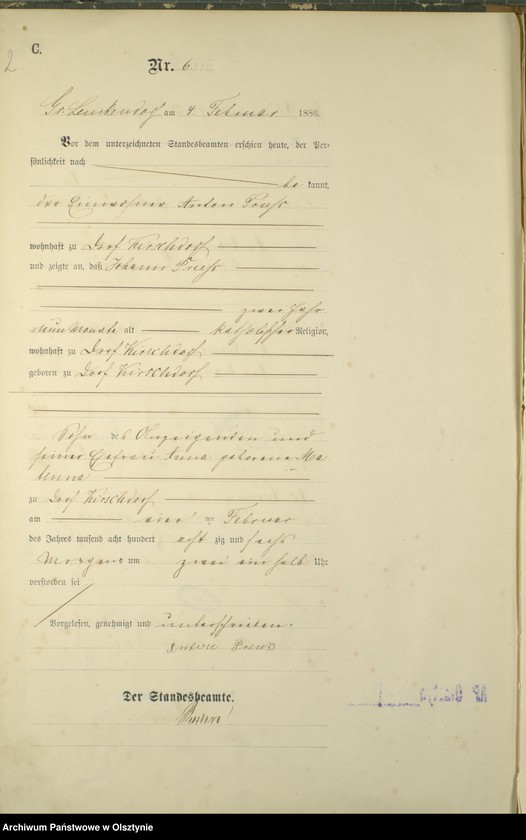 2
C.
Nr. 6.
Gr. Lemkendorf am 4. Februar 1886.
Vor dem unterzeichneten Standesbeamten erschien heute, der Per-
sönlichkeit nach
be kannt,
der Einwohner Anton Preuß
wohnhaft zu Dorf Kirschdorf
und zeigte an, daß Johann Preuß
zwei Jahr
neun Monate alt katholischer Religion,
wohnhaft zu Dorf Kirschdorf
geboren zu Dorf Kirschdorf
Sohn des Anzeigenden und
seiner Ehefrau Anna geborene
zu Dorf Kirschdorf
am vier ten Februar
des Jahres tausend acht hundert acht zig und sechs
Morgens um zwei ein halb Uhr
verstorben sei
Vorgelesen, genehmigt und unterschrieben.
Anton Preuß
Der Standesbeamte.
Archiwum Państwowe w Olsztynie